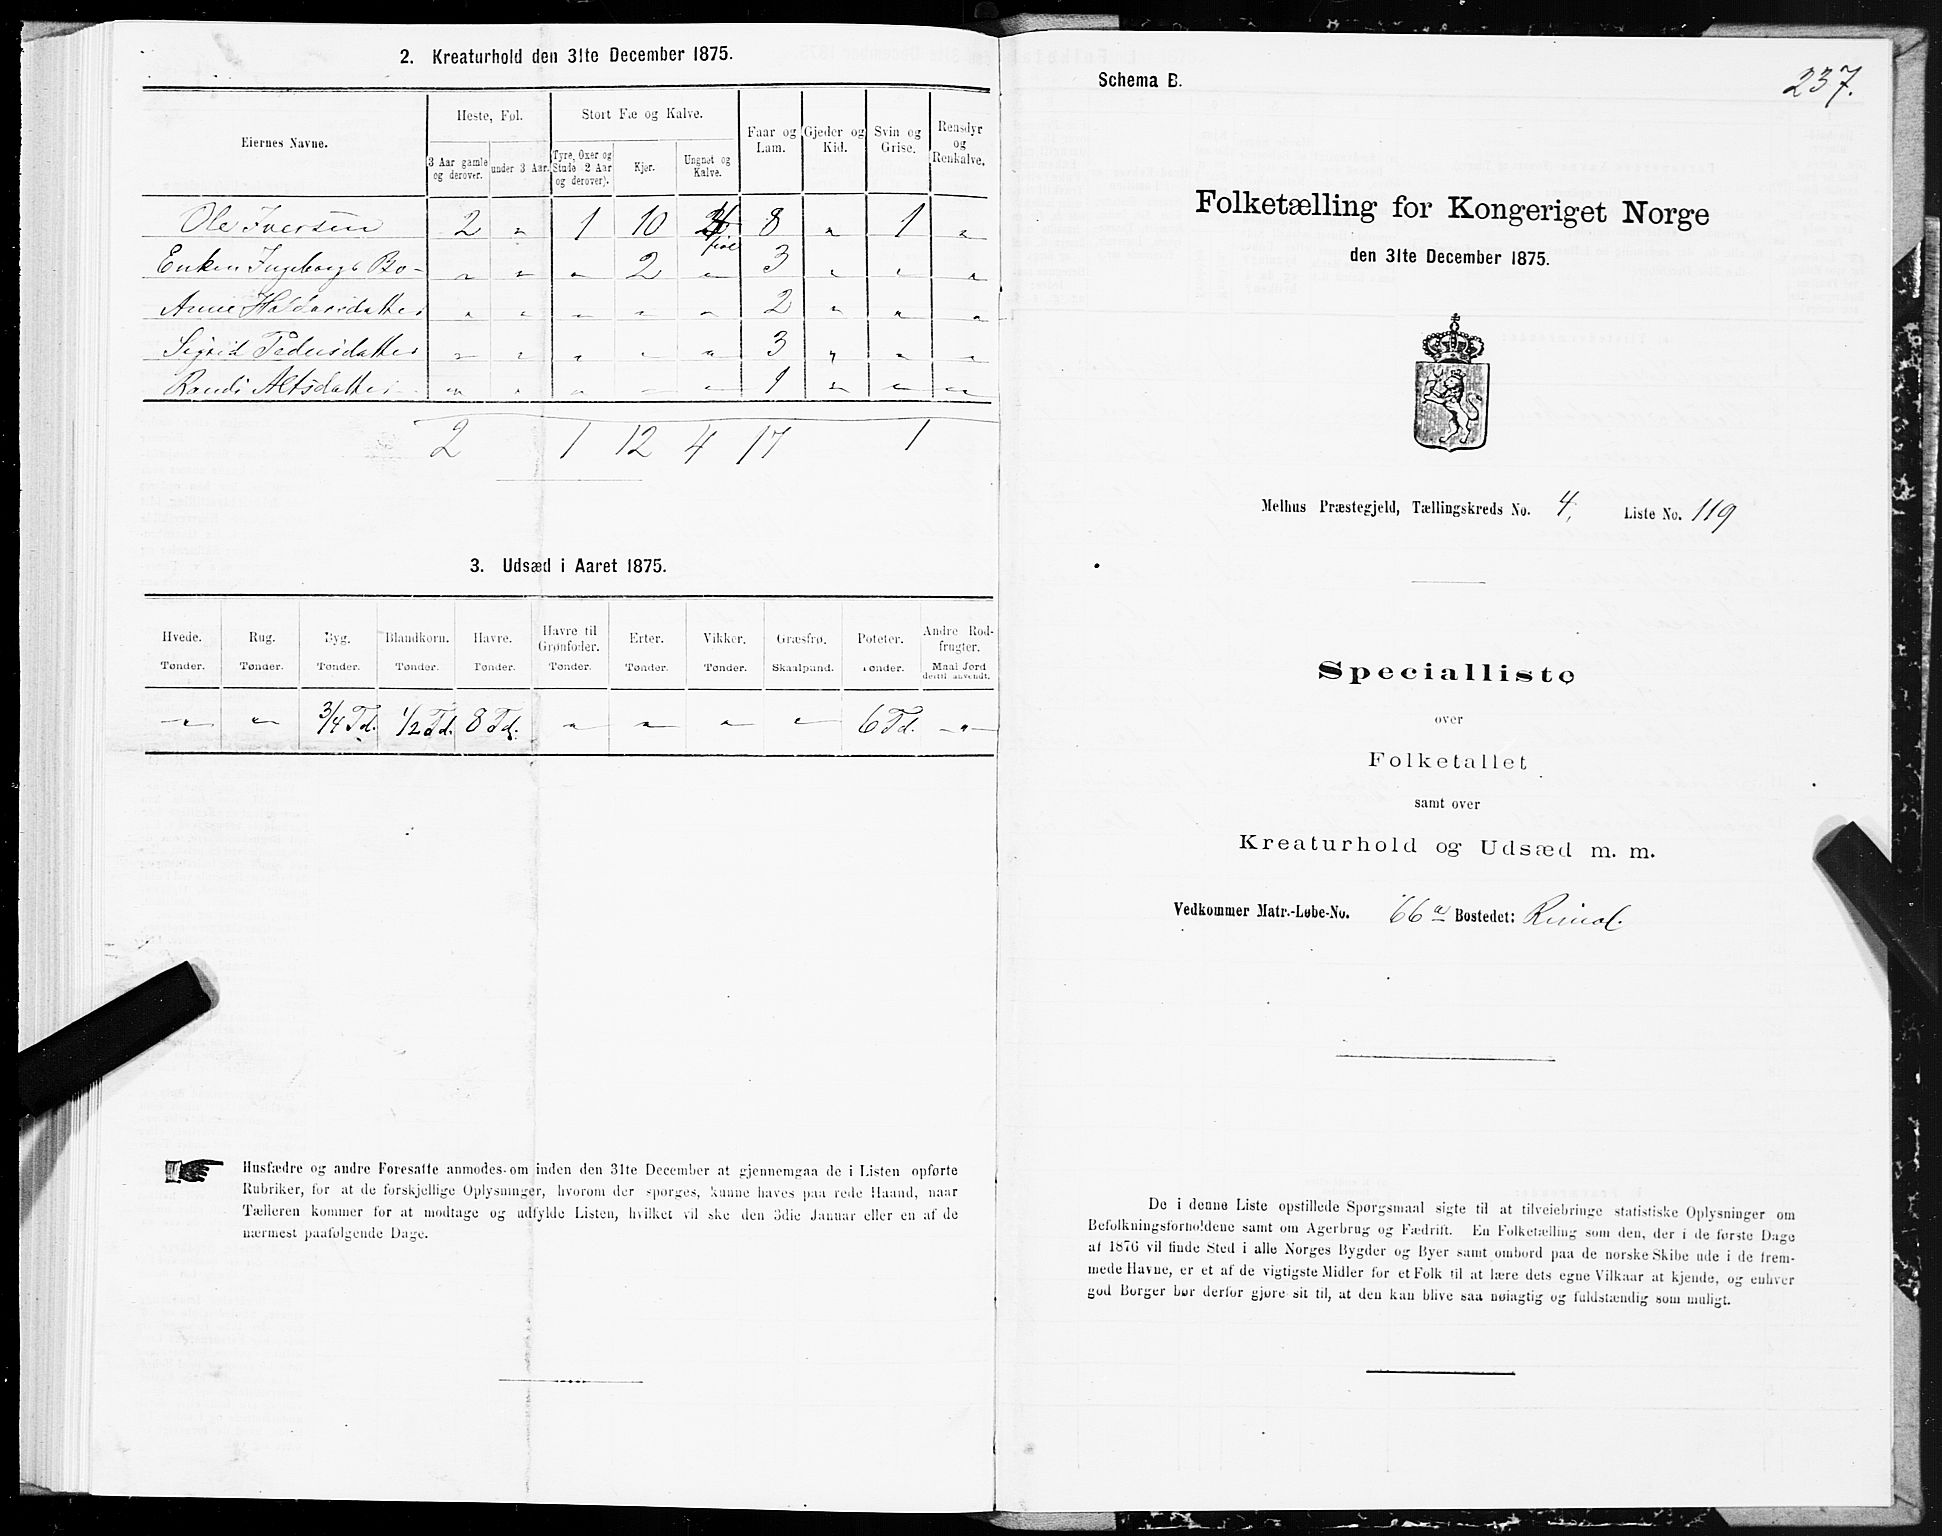 2. Kreaturhold den 31te December 1875.
Eiernes Navne.
Heste, Føl.
Stort Fæ og Kalve.
Faar og Lam.
Gjeder og Kid.
Svin og Grise.
Rensdyr og Renkalve.
3 Aar gamle og derover.
under 3 Aar.
Tyre, Oxer og Stude 2 Aar og derover).
Kjer.
Ungnet og Kalve.
Ole Iversen 2 " 1 10 4 8 " 1 "
Enken Ingeborg Bo- " " " 2 " 3 " " "
Anne Haldorsdatter " " " " " 2 " " "
Sigrid Pedersdatter " " " " " 3 " " "
Randi Altsdatter " " " " " 1 " " "
2 1 12 4 17 1
3. Udsæd i Aaret 1875.
Hvede. Rug. Byg. Blandkorn. Havre. Havre til Grønfoder. Erter. Vikker. Græsfrø. Poteter. Andre Rodfrugter.
Tønder. Tønder. Tønder. Tønder. Tønder. Tønder. Tønder. Tønder. Skaalpund. Tønder. Maal Jord dertil anvendt.
" " 3/4 Td. 1/2 Td. 8 Td. " " " " 6 Td. "
Husfædre og andre Foresatte anmodes om inden den 31te December at gjennemgaa de i Listen opførte
Rubriker, for at de forskjellige Oplysninger, hvorom der spørges, kunne haves paa rede Haand, naar
Tælleren kommer for at modtage og udfylde Listen, hvilket vil ske den 3die Januar eller en af de
nærmest paafølgende Dage.
Schema B.
237.
Folketælling for Kongeriget Norge
den 31te December 1875.
Melhus Præstegjeld, Tællingskreds No. 4, Liste No. 119
Specialliste
over
Folketallet
samt over
Kreaturhold og Udsæd m. m.
Vedkommer Matr.-Løbe-No. 66a Bostedet: Rimol.
De i denne Liste opstillede Spørgsmaal sigte til at tilveiebringe statistiske Oplysninger om
Befolkningsforholdene samt om Agerbrug og Fædrift. En Folketælling som den, der i de første Dage
af 1876 vil finde Sted i alle Norges Bygder og Byer samt ombord paa de norske Skibe ude i de frem-
mede Havne, er et af de vigtigste Midler for et Folk til at lære dets egne Vilkaar at kjende, og enhver
god Borger bør derfor gjøre sit til, at den kan blive saa nøiagtig og fuldstændig som muligt.